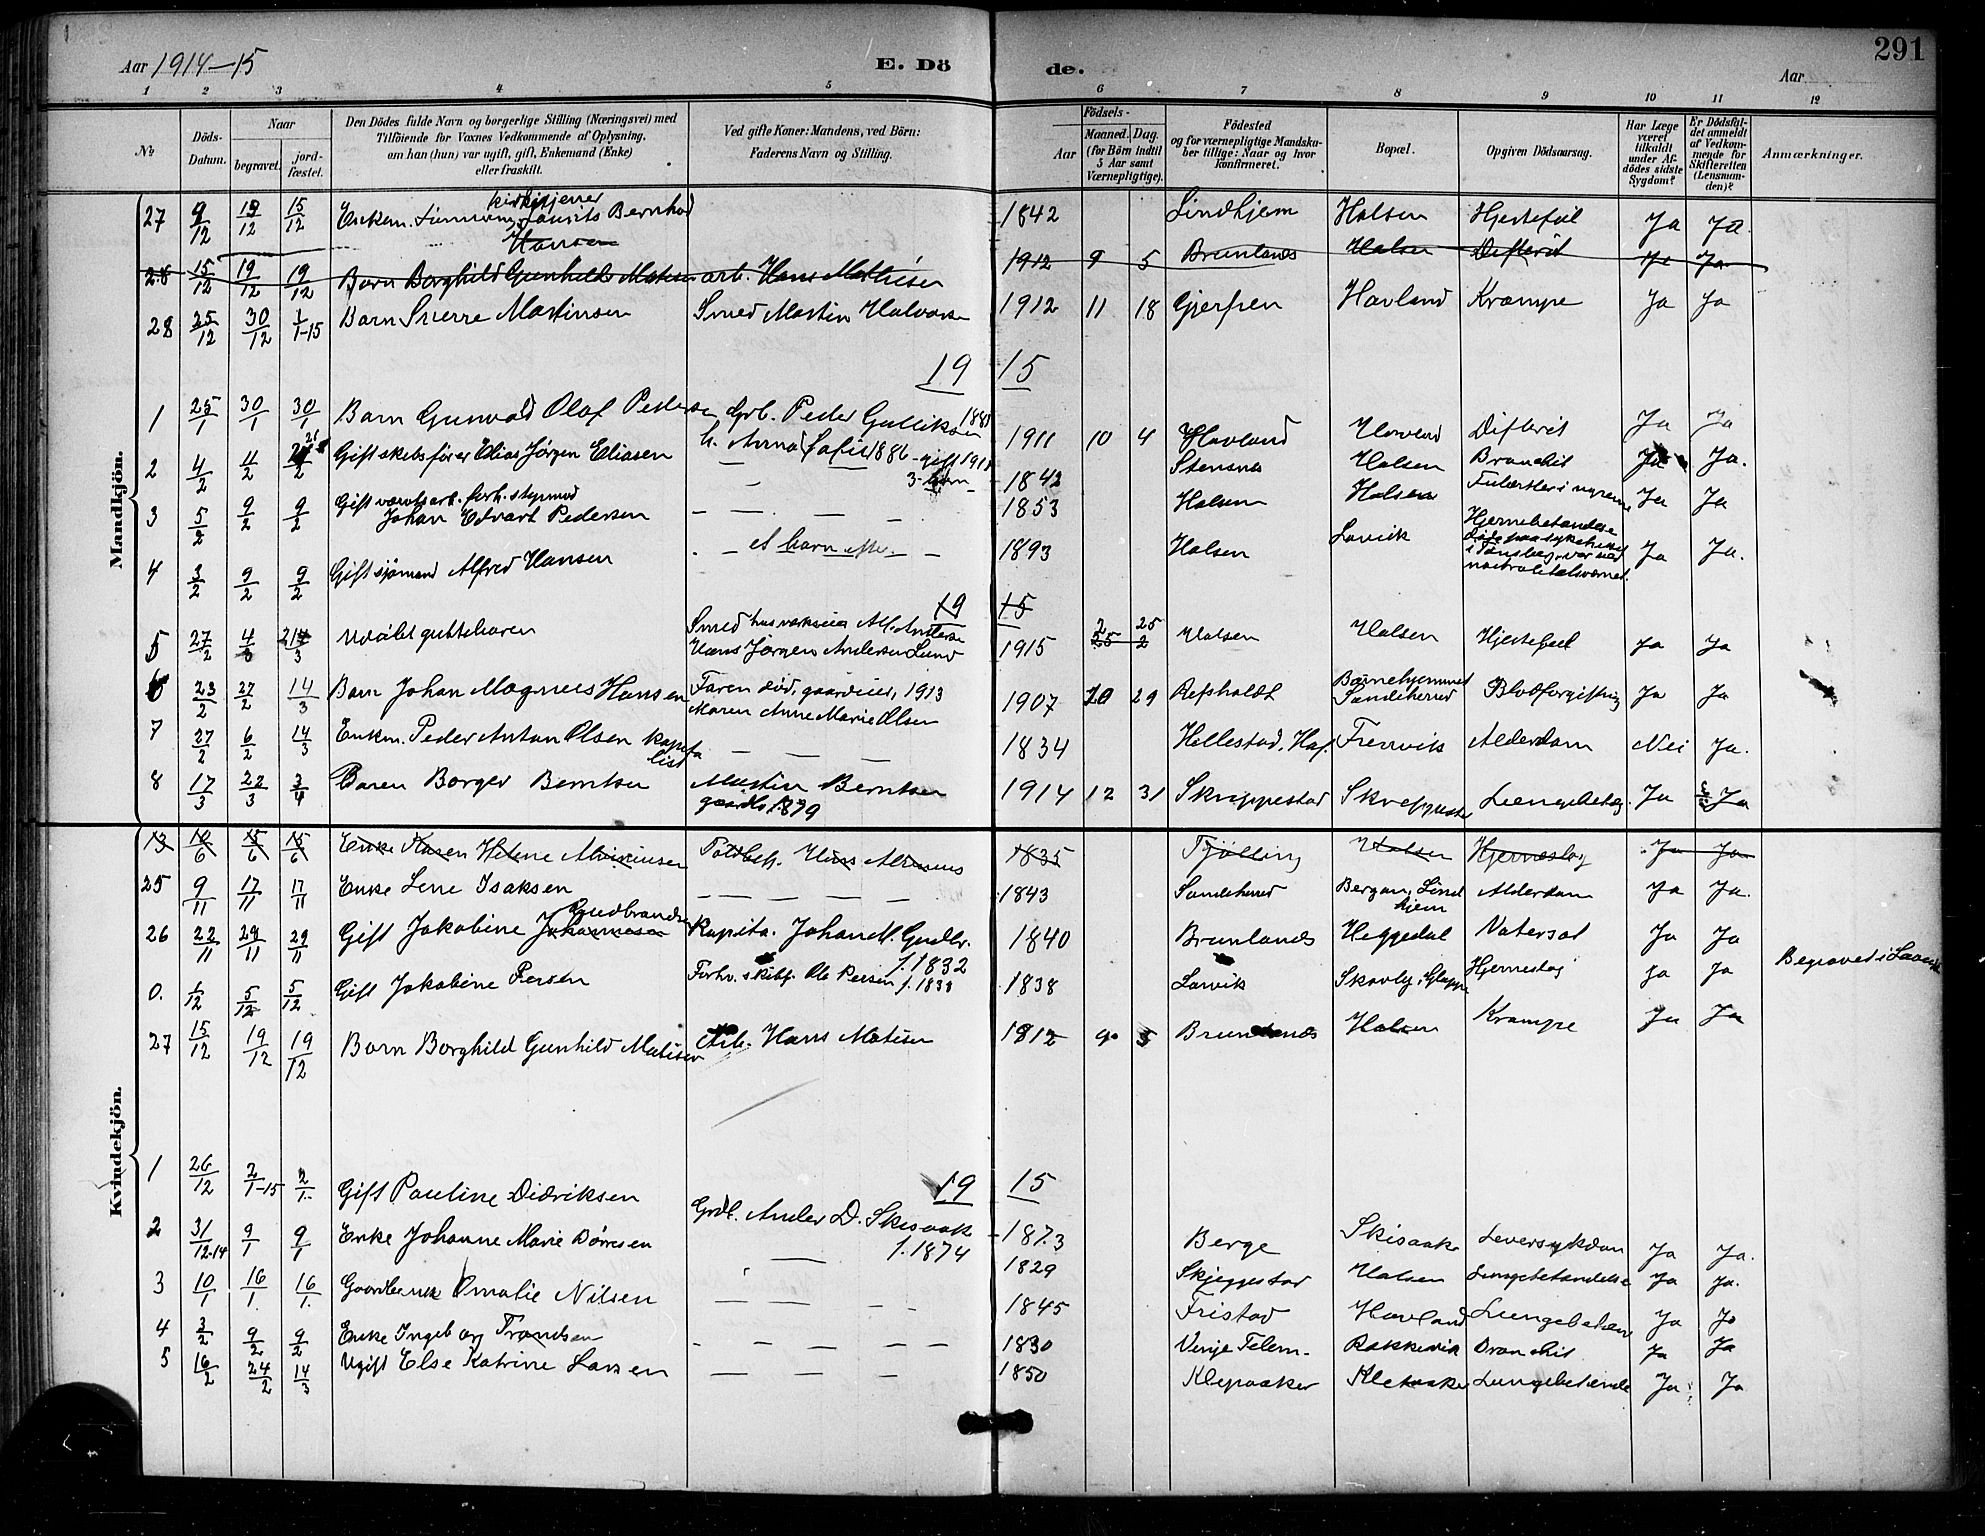 Aar 1914-15 E. Dö de. Aar 291
1 2 3 4 5 6 7 8 9 10 11 12
№ Döds-Datum. Naar begravet. jord-fæstet. Den Dödes fulde Navn og borgerlige Stilling (Næringsvei) med Tilföiende for Voxnes Vedkommende af Oplysning, om han (hun) var ugift, gift, Enkemand (Enke) eller fraskilt. Ved gifte Koner: Mandens, ved Börn: Faderens Navn og Stilling. Födsels- Aar Maaned. Dag. (for Börn indtil 5 Aar samt Værnepligtige). Födested og for værnepligtige Mandskaber tillige: Naar og hvor konfirmeret. Bopæl. Opgiven Dödsaarsag. Har Læge været tilkaldt under Afdödes sidste Sygdom? Er Dödsfaldet anmeldt af Vedkommende for Skifteretten (Lensmanden)? Anmærkninger.
Mandkjön.
kirketjener
27 9/12 15/12 Enkem. Laurits Bernhard 1842 Lindhjem Halsen Hjertefeil Ja Ja.
Hansen
28 15/12 19/12 19/12 Barn Borghild Gunhild Matisen arb. Hans Mathisen 1912 9 5 Brunlanes Halsen Difterit Ja Ja
28 25/12 30/12 1/1-15 Barn Sverre Martinsen Smed Martin Halvorse 1912 11 18 Gjerpen Havland Krampe Ja Ja
19 15
1 25/1 30/1 30/1 Barn Gunvald Olaf Pedersen Grb. Peder Gulliksen 1911 10 4 Havland Havland Difterit Ja Ja
h. Anna Sofie 1886 - gift 1911
3 barn
2 4/2 11/2 Gift skibsfører Elias Jørgen Eliasen — — 1842 Stensnes Halsen Bronchit Ja Ja.
3 5/2 9/2 9/2 Gift værftsarb. forh. styrmand 1853 Halsen Halsen Tuberkler i nyrene Ja Ja
Johan Edvart Pedersen — — — —
4 3/2 9/2 9/2 Gift sjømand Alfred Hansen — et barn efter — 1893 Halsen Larvik Hjernebetændelse Ja Ja.
døde paa sykehuset
i Tønsberg, var ved
nøitralitetsvernet.
19 15
5 27/2 4/3 Udøbt guttebarn Smed husværkseier Alf. Anderse 1915 2 25 Halsen Halsen Hjertefeil Ja Ja
Hans Jørgen Andersen Lund
6 23/2 27/2 14/3 Barn Johan Magnus Hansen Faren død, gaardeier, 1913 1907 10 29 Refsholdt Barnehjemmet Sandeherred Blodforgiftning Ja Ja
Maren Anne Marie Olsen
7 27/2 6/2 14/3 Enkm. Peder Anton Olsen kapitalist — — 1834 Hellestad, Haf. Frevvik Alderdom Nei Ja.
8 17/3 22/3 3/4 Baren Borger Berntsen Martin Berntsen 1914 12 31 Skreppestad Skreppestad Lungebetæ. Ja Ja
gaardb. 1879
Kvindekjön.
13 10/6 15/6 15/6 Enke Karen Helene Alvinusen Toldbetj. Hans Alvinus 1835 Tjølling Halsen Hjerneslag Ja Ja
25 9/11 17/11 17/11 Enke Lene Isaksen — — — — 1843 Sandeherred Bergan, Lindhjem Alderdom Ja Ja.
Gudbrandse
26 22/11 29/11 29/11 Gift Jakobine Johannesen Kapita. Johan M. Gudbr. f. 1832 1840 Brunlanes Heggedal Vatersot Ja Ja
0. 1/12 5/12 5/12 Gift Jakobine Persen Forhv. skibf. Ole Persen f. 1838 1838 Larvik Skovly, Gloppe Hjerneslag Ja Ja Begravet i Laurvik
27 15/12 19/12 19/12 Barn Borghild Gunhild Matisen Arb. Hans Matisen 1812 9 5 Brunlanes Halsen Krampe Ja Ja
19 15
1 26/12 2/1-15 2/1. Gift Pauline Didriksen Grdb. Ander D. Skisaak f. 1874 1873 Berge Skisaake Leversykdom Ja Ja.
2 31/12-14 9/1 9/1 Enke Johanne Marie Dørresen — 1829 Skjeggestad Halsen Lungebetændelse Ja Ja.
3 10/1 16/1. 16/1. Gaardbenke Omalie Nilsen — — — — 1845 Fristad Havland Lungebetæn Ja Ja
4 3/2 9/2 9/2 Enke Ingeborg Trondsen — — — — 1830 Vinje Telem. Rakkevik Bronchit Ja Ja
5 16/2 24/2 14/3 Ugift Else Katrine Larsen — — — 1850 Klepaaker Klepaaker Lungebetænde Ja Ja